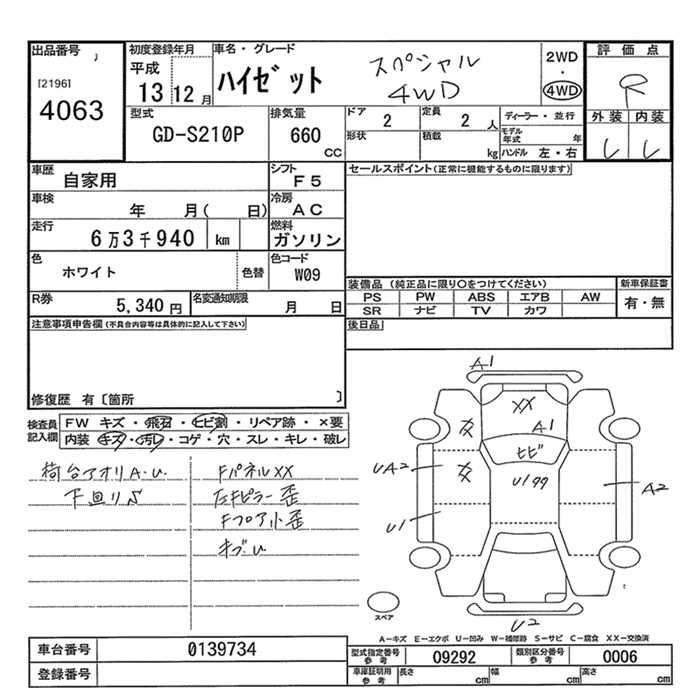 出品番号
[2196]
4063
初度登録年月
平成
13 12 月
車名・グレード
ハイゼット
スペシャル
4WD
2WD
・
4WD
評価点
R
外装 内装
型式
GD-S210P
排気量
660
CC
ドア
2
定員
2 人
形状
積載
kg
ディーラー・並行
モデル年式 年
ハンドル 左・右
車歴
自家用
シフト
F5
セールスポイント(正常に機能するものに限ります)
車検
年 月( 日)
冷房
AC
走行
6万3千940 km
燃料
ガソリン
色
ホワイト
色替
色コード
W09
装備品(純正品に限り〇をつけてください)
新車保証書
PS PW ABS エアB AW
有・無
SR ナビ TV カワ
R券
5,340 円
名変通知期限
月 日
後日品
注意事項申告欄(不具合内容等は具体的に記入して下さい)
修復歴 有〔箇所 〕
検査員記入欄
FW キズ・飛石・ヒビ割・リペア跡・×要
内装 キズ・汚レ・コゲ・穴・スレ・キレ・破レ
荷台アオリA・U
下廻りS
FパネルXX
Fフロア小歪
A1
XX
A1
ヒビ
UA2
U199
A2
U1
U2
スペア
A-キズ E-エクボ U-凹み W-補修跡 S-サビ C-腐食 XX-交換済
車台番号
0139734
型式指定番号
参考
09292
類別区分番号
参考
0006
登録番号
車庫証明用
参考
長さ cm
幅 cm
高さ cm